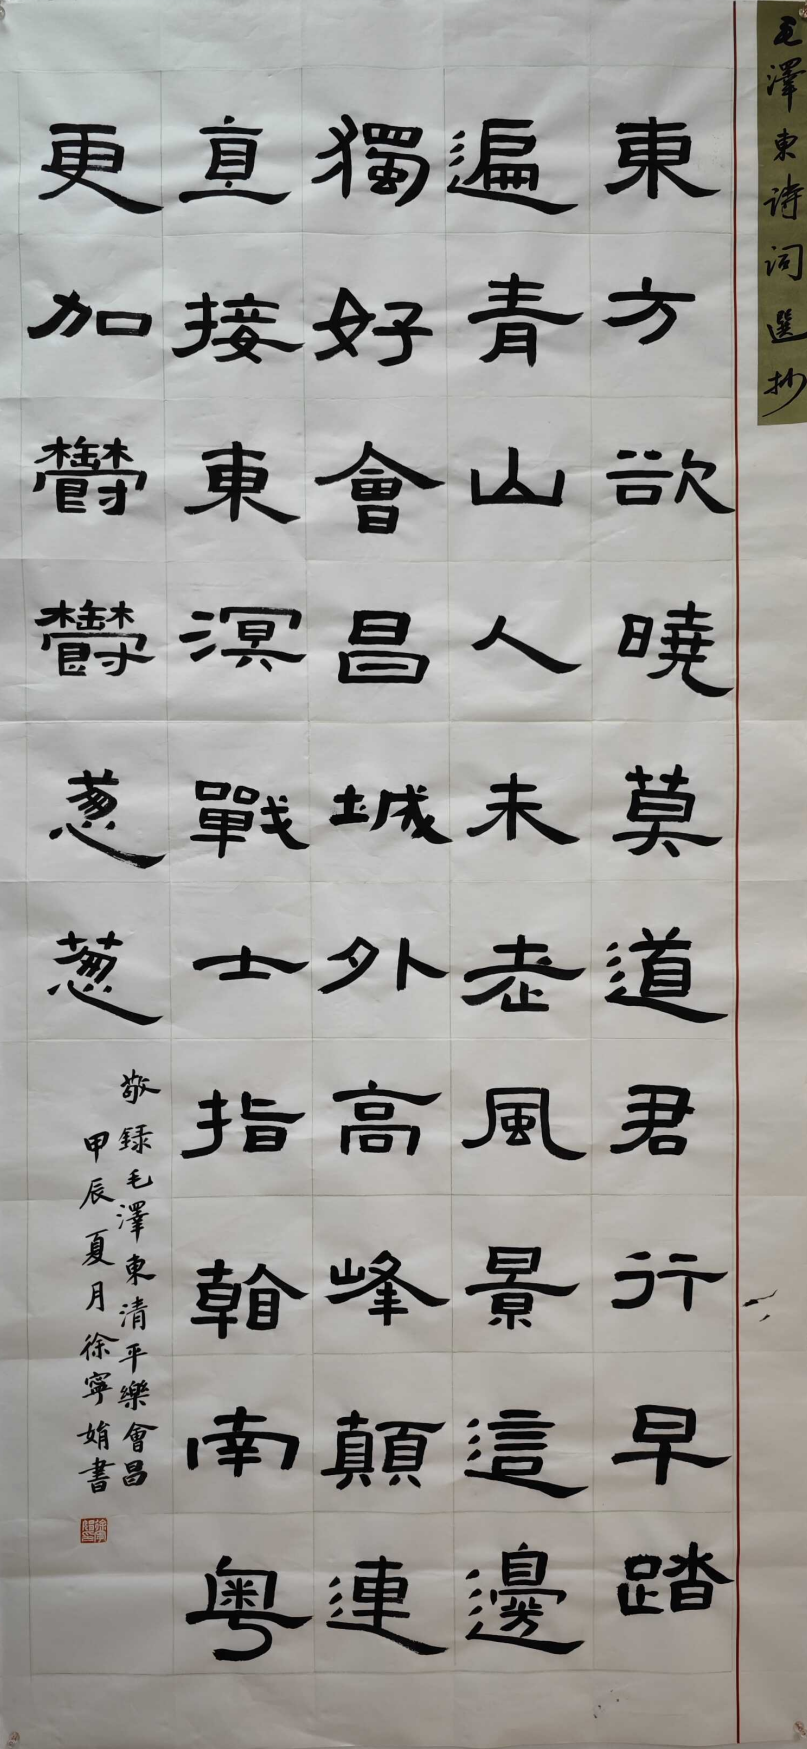 毛澤東诗词選抄
東方欲曉莫道君行早踏
遍青山人未老風景這邊
獨好會昌城外高峰顛連
直接東溟戰士指看南粵
更加鬱鬱葱葱
敬録毛澤東清平樂會昌
甲辰夏月徐寧娟書